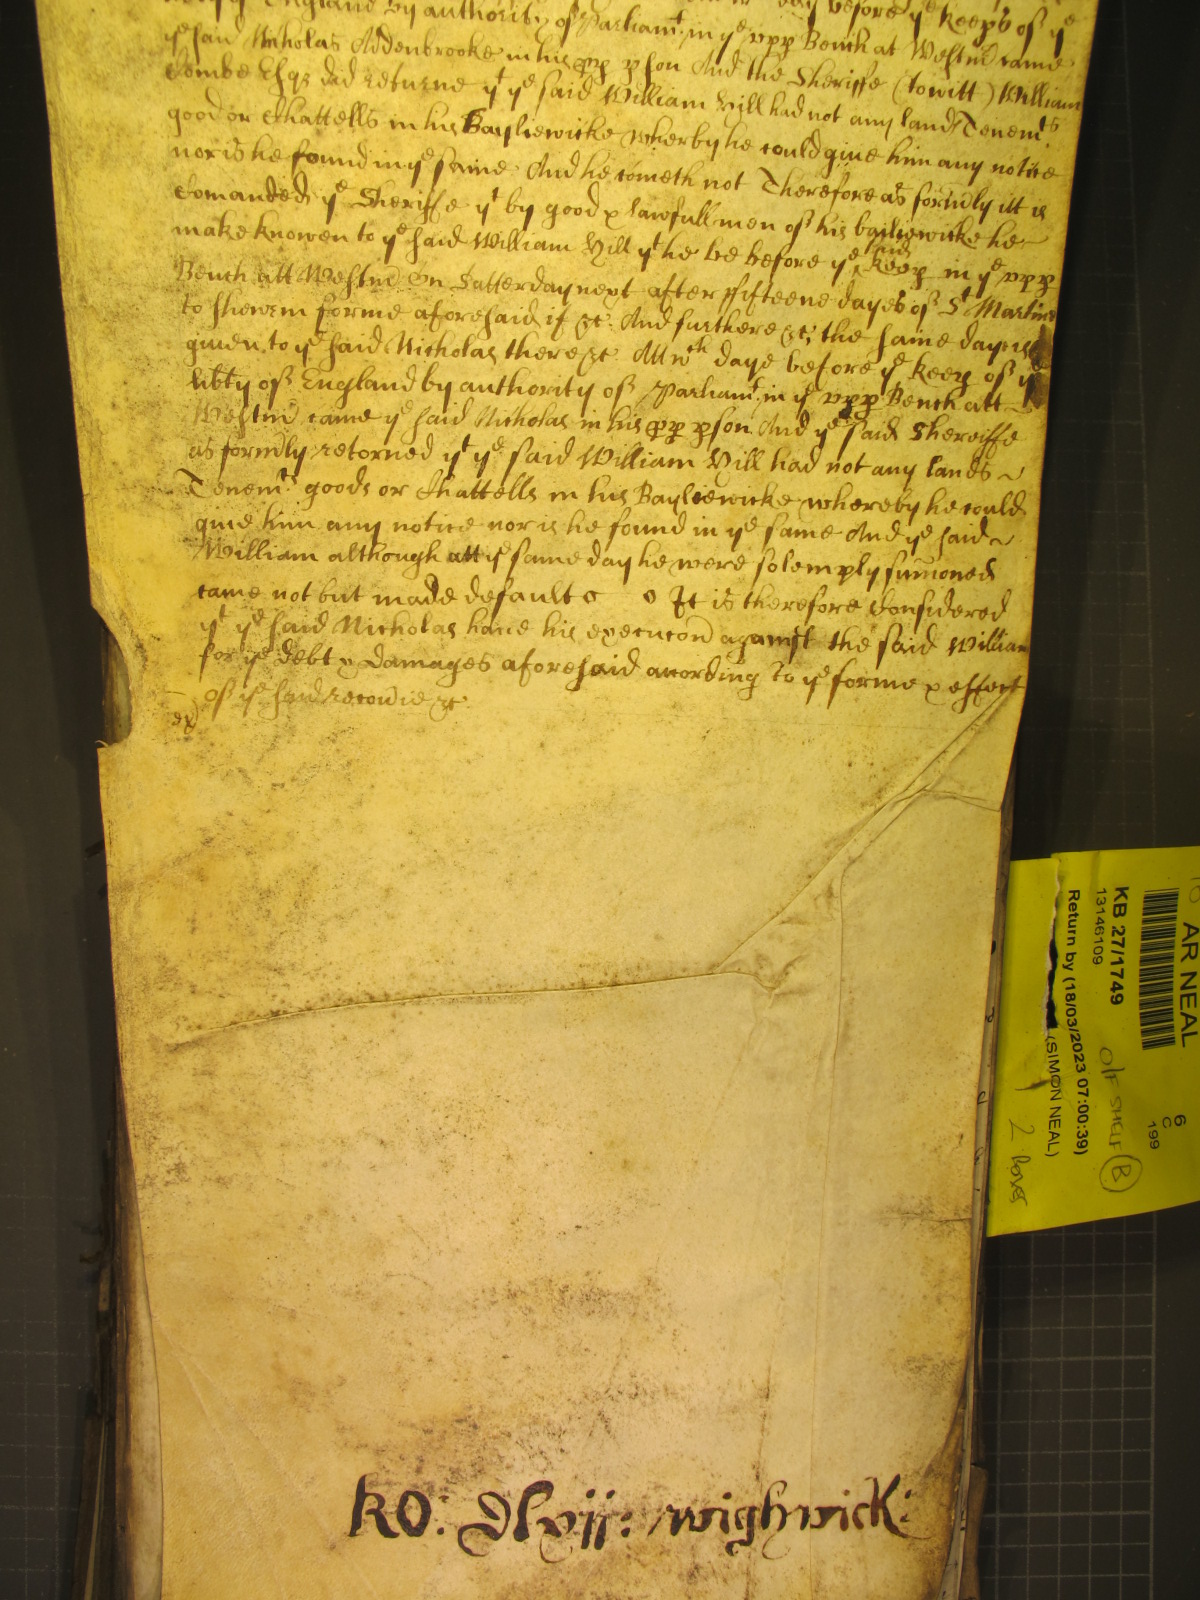 England by authority of Parliamt. in ye upp Bench at Westmr came
ye said Nicholas Addenbrooke in his ppp pson And the Sheriffe (towitt) William
Combe Esqr did returne yt ye said William Hill had not any lands Tenemts
good or Chattells in his Bayliewicke wherby he could give him any notice
nor is he found in ye same And he cometh not Therefore as formly itt is
Comanded ye Sheriffe yt by good & lawfull men of his bailiewicke he
make knowen to ye said William Hill yt he be before ye said Keep in ye upp
Bench att Westmr On Satterday next after ffifteene dayes of St Martine
to shew in forme aforesaid if &c. And further &c, the same day is
given to ye said Nicholas there &c. Att wch daye before ye Keep of ye
libty of England by authority of Parliamt. in ye upp Bench att
Westmr came ye said Nicholas in his ppp pson And ye said Shereiffe
as formly retorned yt ye said William Hill had not any lands
Tenemts. goods or Chattells in his Bayliewicke whereby he could
give him any notice nor is he found in ye same And ye said
William although att ye same day he were solemply sumoned
came not but made default It is therefore Considered
yt ye said Nicholas have his execucon against the said William
for ye debt & damages aforesaid acording to ye forme & effect
of ye said recovie &c
ex
RO: Dlvij: wighwick:
AR NEAL
6
C
199
KB 27/1749
13146109
Return by (18/03/2023 07:00:39)
(SIMON NEAL)
O/F SHELF B
2 boxes